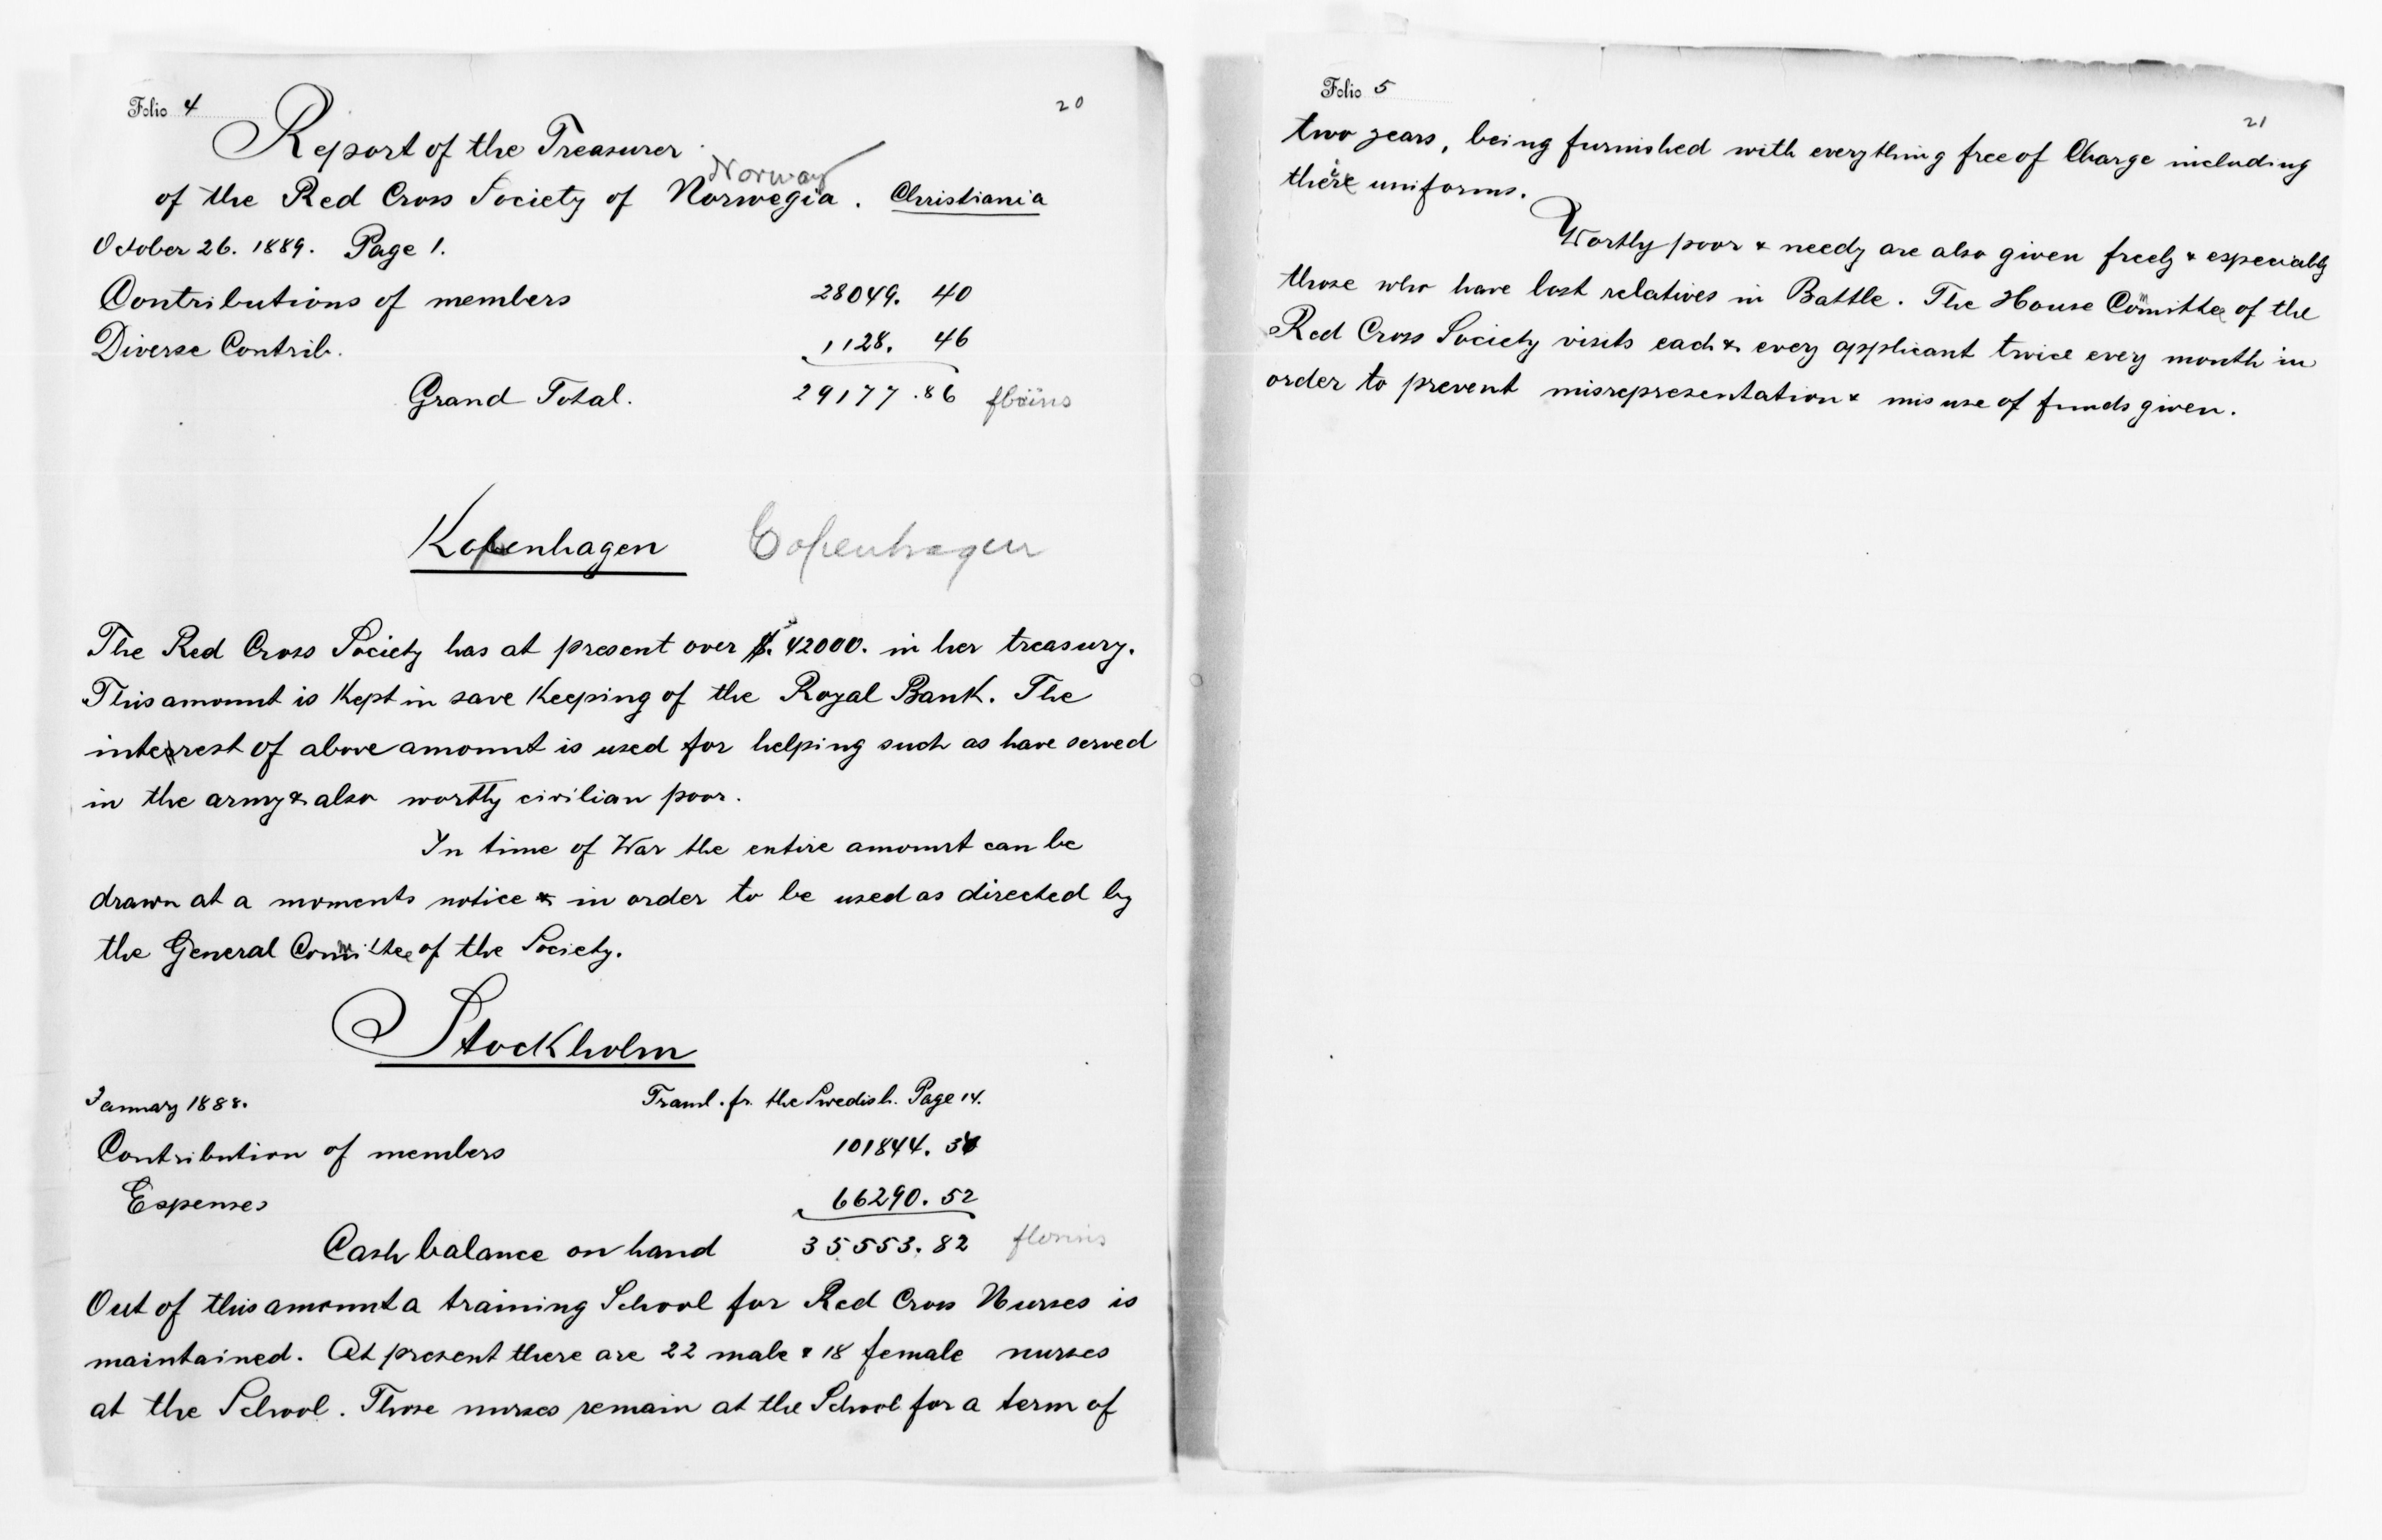 Folio 4
20
Report of the Treasurer
Norway
of the Red Cross Society of Norwegia. Christiania
October 26. 1889. Page 1.
Contributions of members 28049. 40
Diverse Contrib. 1128. 46
Grand Total. 29177.86 florins
Kopenhagen Copenhagen
The Red Cross Society has at present over $. 42000. in her treasury.
This amount is Kept in save Keeping of the Royal Bank. The
interrest of above amount is used for helping such as have served
in the army & also worthy civilian poor.
In time of War the entire amount can be
drawn at a moments notice & in order to be used as directed by
the General Committee of the Society.
Stockholm
January 1888. Transl. fr. the Swedish. Page 14.
Contribution of members 101844. 34
Expenses 66290. 52
Cash balance on hand 35553. 82 florins
Out of this amount a training School for Red Cross Nurses is
maintained. At present there are 22 male & 18 female nurses
at the School. Those nurses remain at the School for a term of
Folio 5
21
two years, being furnished with everything free of Charge including
there uniforms.
Worthy poor & needy are also given freely & especially
those who have lost relatives in Battle. The House Committee of the
Red Cross Society visits each & every applicant twice every month in
order to prevent misrepresentation & misuse of funds given.